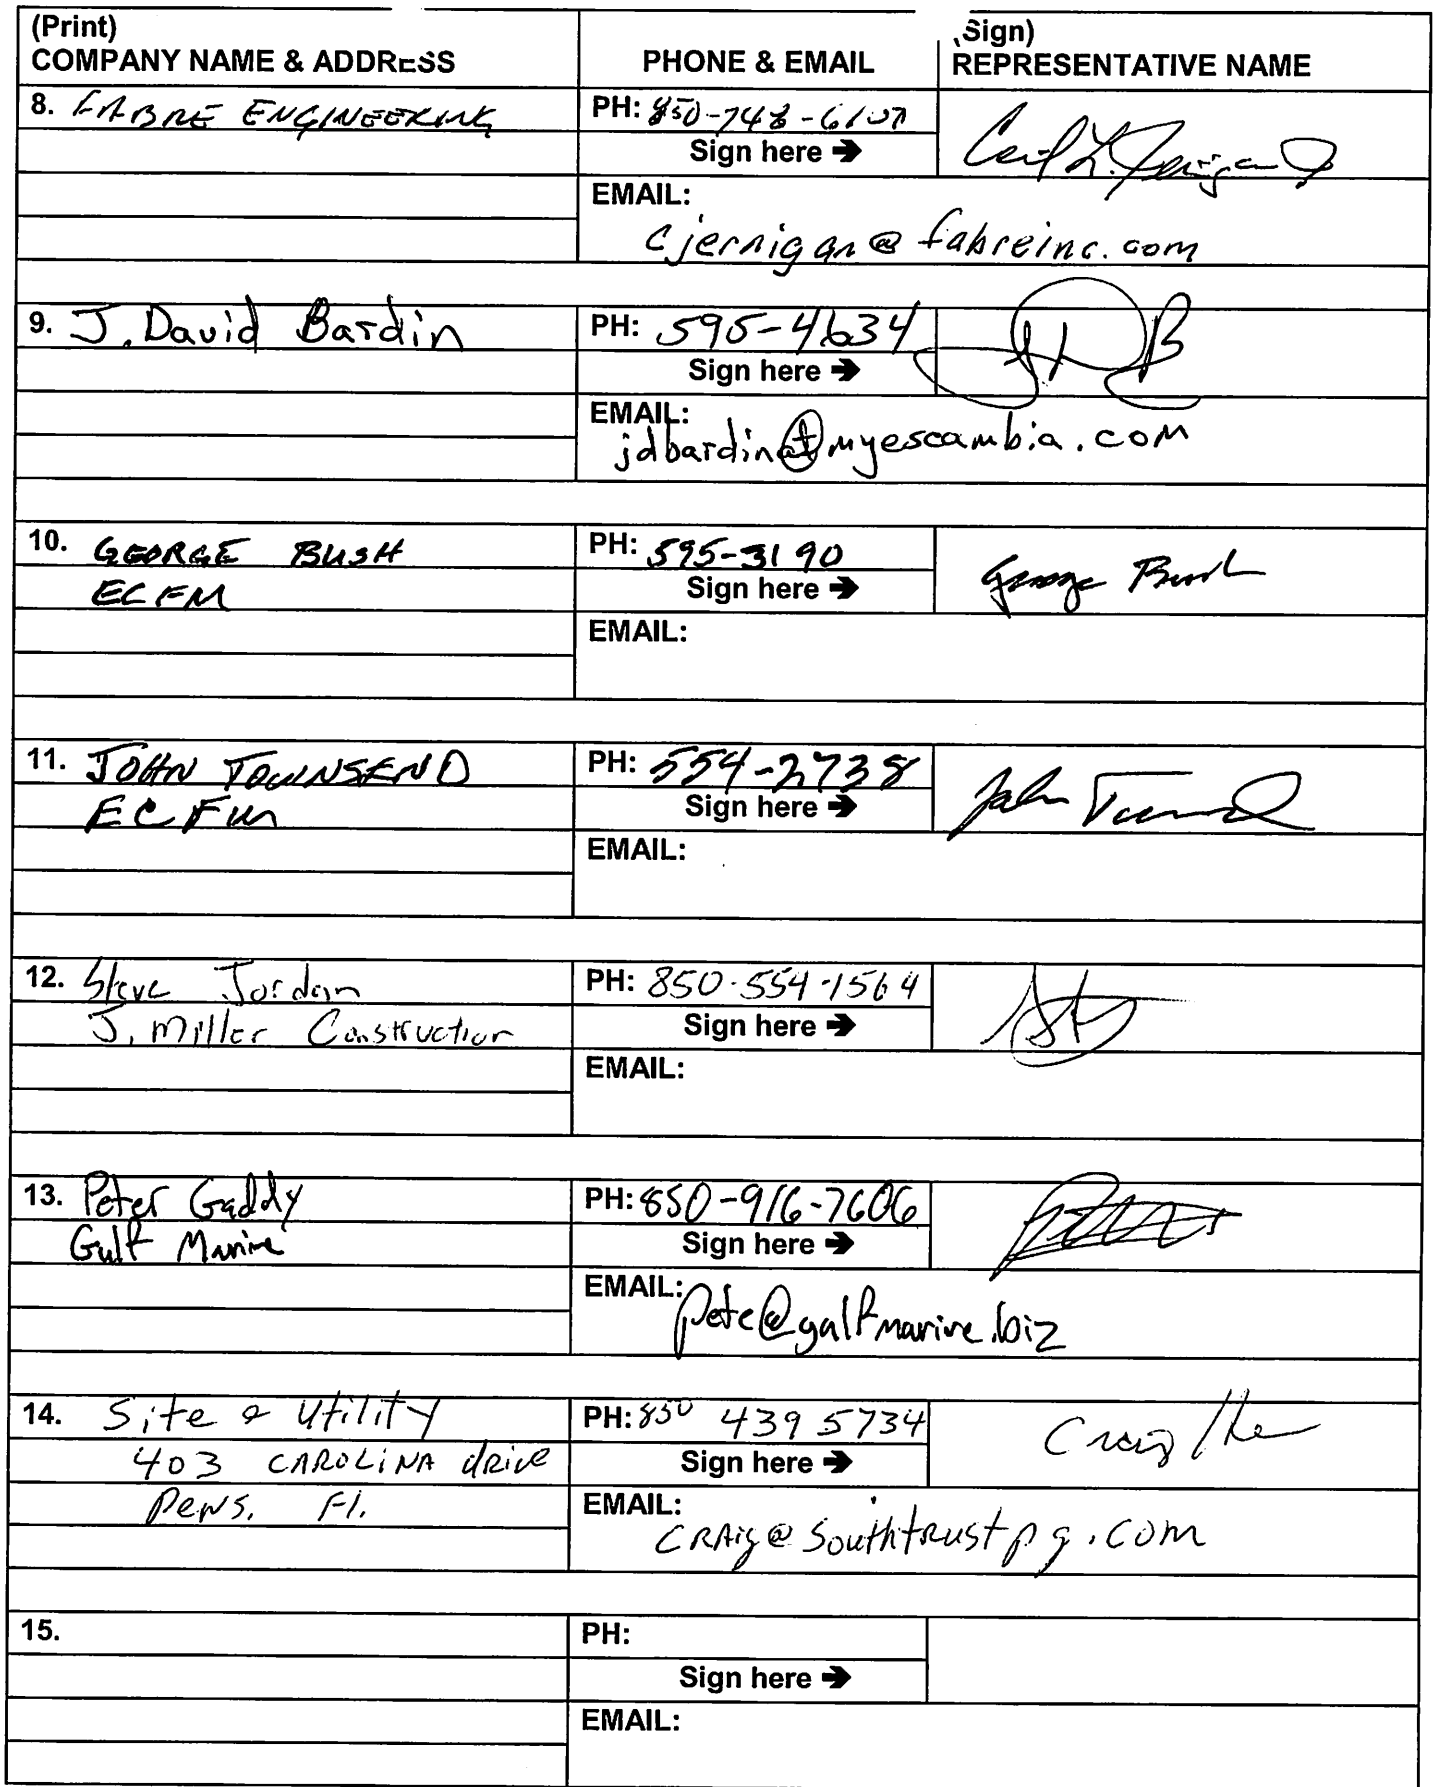 (Print)
COMPANY NAME & ADDRESS
PHONE & EMAIL
(Sign)
REPRESENTATIVE NAME
8. FABRE ENGINEERING
PH:
Sign here →
EMAIL:
cjernigan@fabreinc.com
9. J. David Bardin
PH: 595-4634
Sign here →
EMAIL:
jdbardin@myescambia.com
10. GEORGE BUSH
ECFM
PH: 595-3190
Sign here →
George Bush
EMAIL:
11. JOHN TOWNSEND
ECFM
PH: 554-2738
Sign here →
John
EMAIL:
12. Steve Jordan
J. Miller Construction
PH: 850-554-1564
Sign here →
EMAIL:
13. Peter Gaddy
Gulf Marine
PH: 850-916-7606
Sign here →
EMAIL:
pete@gulfmarine.biz
14. Site & Utility
403 CAROLINA drive
Pens. Fl.
PH: 850 439 5734
Sign here →
Craig
EMAIL:
CRAig@southtrustpg.com
15.
PH:
Sign here →
EMAIL: